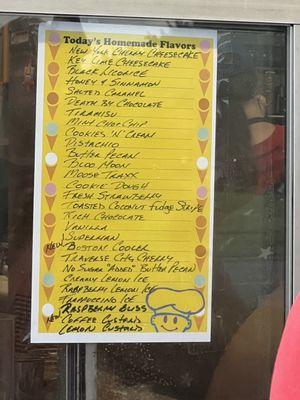 Today's Homemade Flavors
New York Cherry Cheesecake
Key Lime Cheesecake
Black Licorice
Honey & Sinnamon
Salted Caramel
Death By Chocolate
Tiramisu
Mint Choc Chip
Cookies 'N' Cream
Pistachio
Butter Pecan
Bloo Moon
Moose Traxx
Cookie Dough
Fresh Strawberry
Toasted Coconut Fudge Stripe
Rich Chocolate
Vanilla
Superman
New Boston Cooler
Traverse City Cherry
No Sugar "Added" Butter Pecan
Creamy Lemon Ice
Raspberry Lemon Ice
Frappuccino Ice
Raspberry Bliss
New Coffee Custard
Lemon Custard